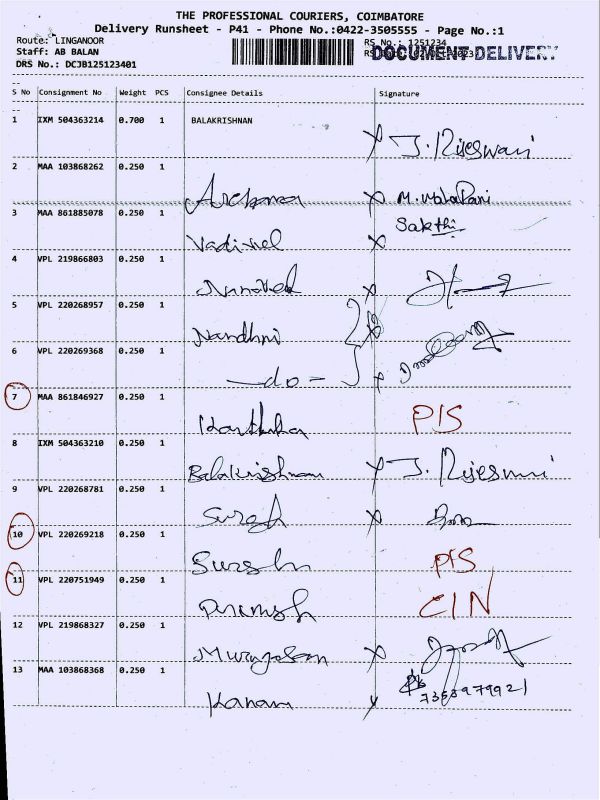 THE PROFESSIONAL COURIERS, COIMBATORE
Delivery Runsheet - P41 - Phone No.:0422-3505555 - Page No.:1
Route: LINGANOOR
RS No.: 1251234
Staff: AB BALAN
DOCUMENT DELIVERY
DRS No.: DCJB125123401
S No Consignment No Weight PCS Consignee Details Signature
1 IXM 504363214 0.700 1 BALAKRISHNAN
2 MAA 103868262 0.250 1 Archana
3 MAA 861885078 0.250 1 Vadivel Sakthi
4 VPL 219866803 0.250 1
5 VPL 220268957 0.250 1 Nandhni
6 VPL 220269368 0.250 1 -do-
7 MAA 861846927 0.250 1 Karthika PIS
8 IXM 504363210 0.250 1 Balakrishnan
9 VPL 220268781 0.250 1 Suresh
10 VPL 220269218 0.250 1 Suresh PIS
11 VPL 220751949 0.250 1 CIN
12 VPL 219868327 0.250 1 Murugesan
13 MAA 103868368 0.250 1 Kanam